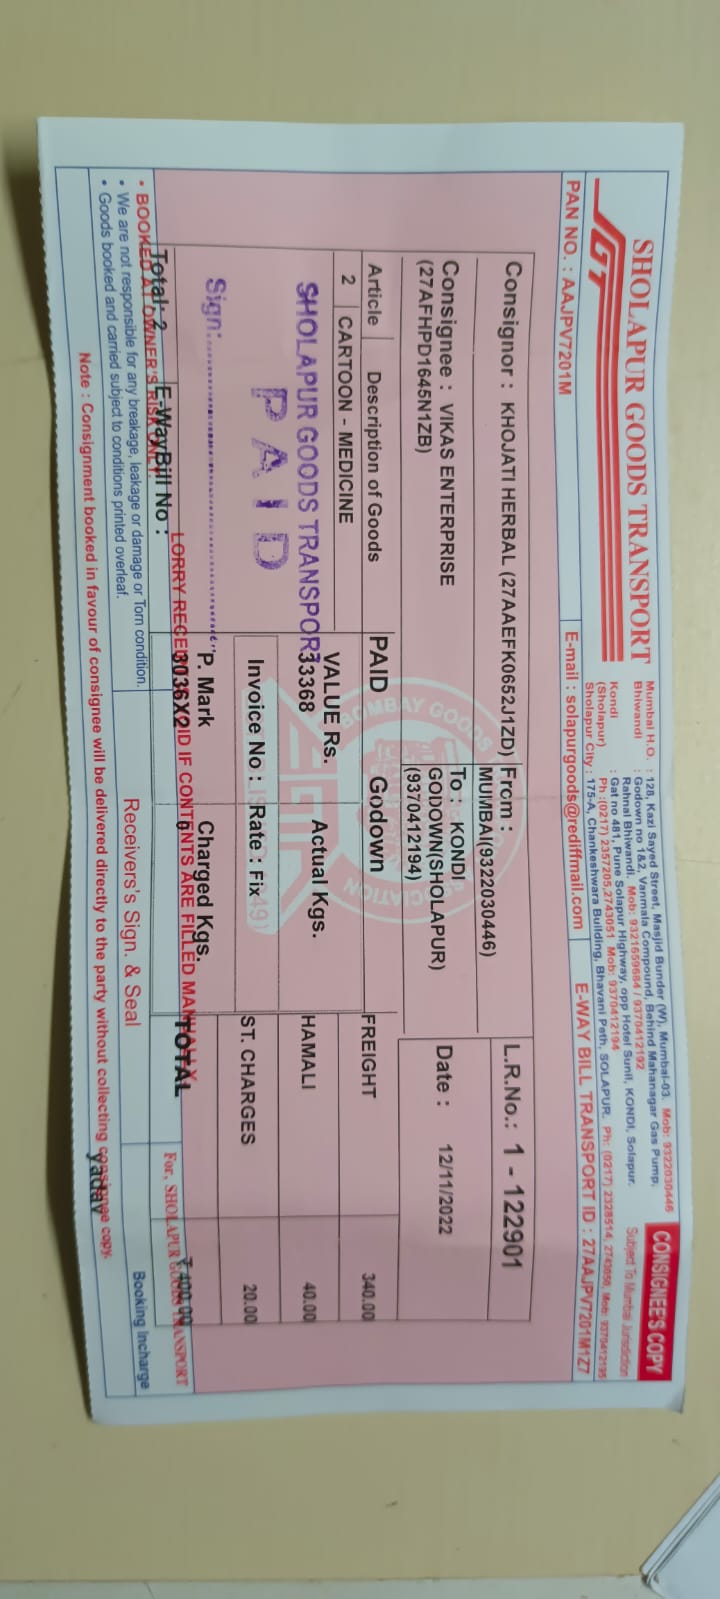 SHOLAPUR GOODS TRANSPORT
SGT
Mumbai H.O. : 128, Kazi Sayed Street, Masjid Bunder (W), Mumbai-03. Mob: 9322030446
Bhiwandi : Godown no 1&2, Vanmala Compound, Behind Mahanagar Gas Pump,
Rahnal Bhiwandi. Mob: 9321659684 / 9370412192
Kondi : Gat no 481, Pune Solapur Highway, opp Hotel Sunil, KONDI, Solapur.
(Sholapur) Ph :(0217) 2357205,2743051 Mob: 9370412194
Sholapur City : 175-A, Chankeshwara Building, Bhavani Peth, SOLAPUR. Ph: (0217) 2328514, 2743050, Mob: 9370412195
CONSIGNEE'S COPY
Subject To Mumbai Jurisdiction
PAN NO. : AAJPV7201M
E-mail : solapurgoods@rediffmail.com
E-WAY BILL TRANSPORT ID : 27AAJPV7201M1Z7
Consignor : KHOJATI HERBAL (27AAEFK0652J1ZD)
From :
MUMBAI(9322030446)
L.R.No.: 1 - 122901
Consignee : VIKAS ENTERPRISE
(27AFHPD1645N1ZB)
To : KONDI
GODOWN(SHOLAPUR)
(9370412194)
Date : 12/11/2022
Article Description of Goods PAID Godown FREIGHT 340.00
2 CARTOON - MEDICINE
VALUE Rs.
33368
Actual Kgs.
HAMALI 40.00
SHOLAPUR GOODS TRANSPORT
PAID
Sign:
Invoice No : Rate : Fix
ST. CHARGES 20.00
P. Mark
3036X2
Charged Kgs.
Total: 2 E-WayBill No :
TOTAL ₹ 400.00
BOMBAY GOODS
LORRY RECEIPT VOID IF CONTENTS ARE FILLED MANUALLY
• BOOKED AT OWNER'S RISK ONLY.
• We are not responsible for any breakage, leakage or damage or Torn condition.
• Goods booked and carried subject to conditions printed overleaf.
Receivers's Sign. & Seal
For, SHOLAPUR GOODS TRANSPORT
yadav
Booking Incharge
Note : Consignment booked in favour of consignee will be delivered directly to the party without collecting consignee copy.